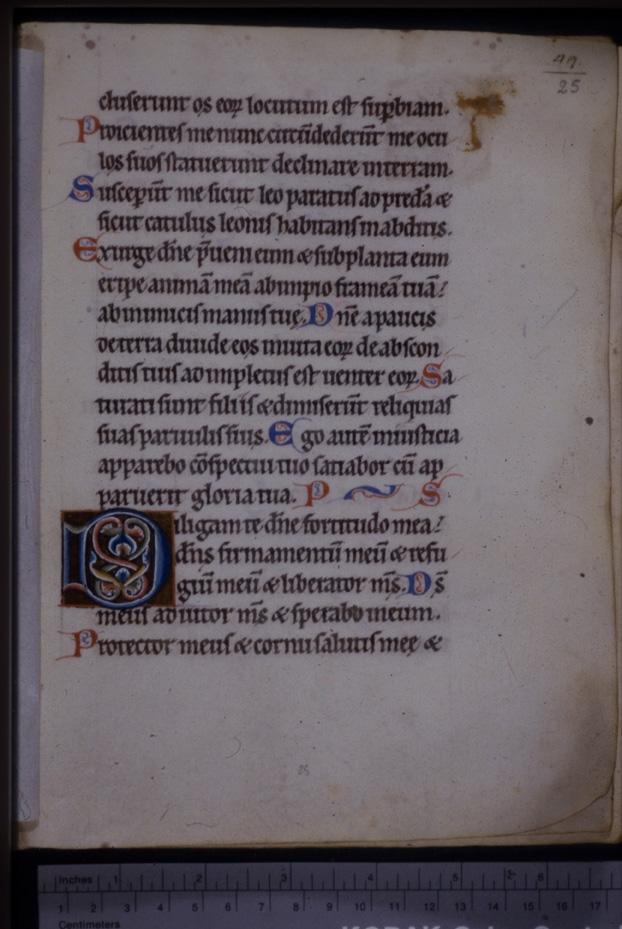 49.
25
cluserunt os eoꝝ locutum est supbiam.
Proicientes me nunc circūdederūt me ocu
los suos statuerunt declinare interram.
Susceperūt me sicut leo paratus ad predā &
sicut catulus leonis habitans inabditis.
Exurge dn̄e p̄ueni eum & subplanta eum
eripe animā meā abimpio frameā tuā:
abinimicis manus tuę. Dn̄e apaucis
deterra diuide eos inuita eoꝝ deabscon
ditis tuis adimpletus est uenter eoꝝ. Sa
turati sunt filiis & dimiserūt reliquias
suas paruulis suis. Ego autē iniusticia
apparebo cōspectui tuo satiabor cū ap
paruerit gloria tua. P S
Diligam te dn̄e fortitudo mea:
dn̄s firmamentū meū & refu
giū meū & liberator ms̄. Ds̄
meus adiutor ms̄ & sperabo ineum.
Protector meus & cornu salutis meę &
25
Inches 1 2 3 4 5 6
1 2 3 4 5 6 7 8 9 10 11 12 13 14 15 16 17
Centimeters